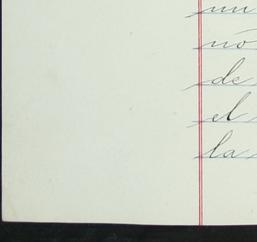 un
no
de
el
la